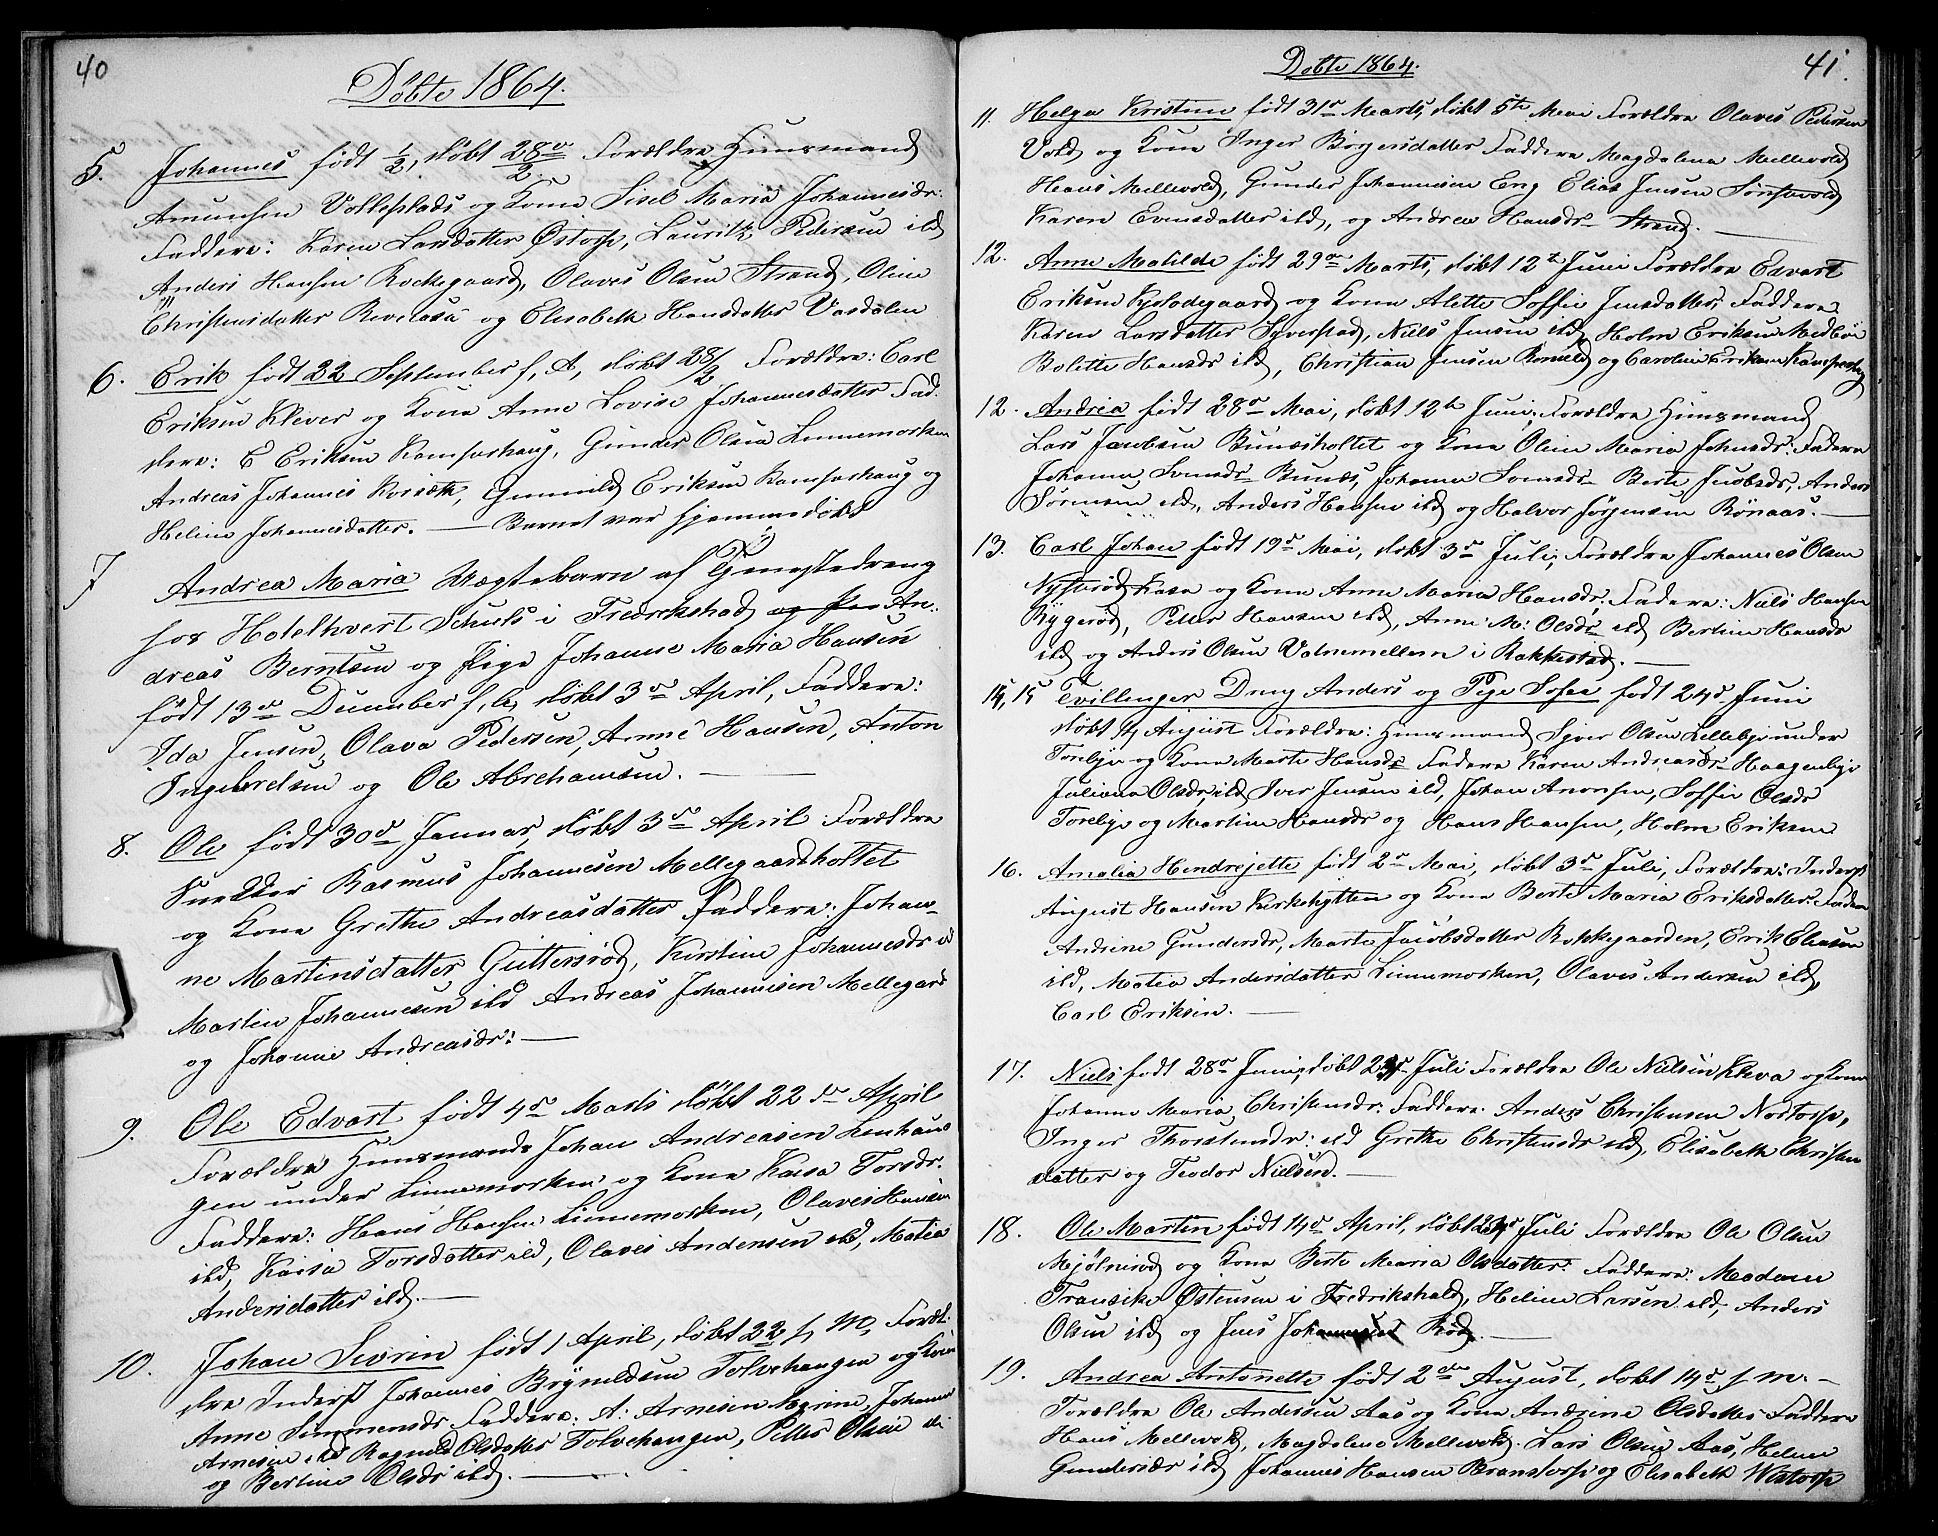 40
Döbte 1864.
5. Johannes født 1/2, døbt 28de/2. Forældre Huusmand
Amunsen Volleplads og Kona Sisel Maria Johannesdr:
Faddere: Karen Larsdatter Østorp, Lauritz Pedersen ibd
Anders Hansen Rockegaard, Olaves Olsen Strand, Oline
Christensdatter Revelaså og Elisabeth Hansdatter Vasdalen
6. Erik født 22 September f, A, døbt 28/2 Forældre: Carl
Eriksen Klever og Kona Anne Lovise Johannesdatter Fad-
dere: E Eriksen Kamperhaug, Gunder Olsen Linnemorken
Andreas Johannes Korsæth, Gunnild Eriksen Kamperhaug og
Heline Johannesdatter. — Barnet var hjemmedøbt
7 Andrea Maria Uægtebarn af Tjenestedreng
hos Hotelhvert Schuls i Fredrikshad og Pee An-
dreas Berntsen og Pige Johanne Maria Hansen
født 13de December f, A, døbt 3de April, Faddere:
Ida Jensen, Olava Pedersen, Anne Hansen, Anton
Ingebretsen og Ole Abrehamsen. —
8. Ole født 30de Januar, døbt 3de April Forældre
Rasmus Johannesen Mellegaardholtet
og Kona Grethe Andreasdatter Faddere: Johan-
ne Martinsdatter Guttersrød, Kirstine Johannesdr ibd
Martin Johannesen ibd Andreas Johannesen Mellegard
og Johanne Andreasdr: —
9. Ole Edvart født 4de Marts døbt 22de April
Forældre Huusmands Johan Andreasen Lenhau-
gen under Linnemorken og Kona Kaisa Torsdr.
Faddere: Hans Hansen Linnemorken, Olaves Hansen
ibd, Kaisa Torsdatter ibd, Olaves Andersen ibd, Matea
Andersdatter ibd. —
10. Johan Sevrin født 1 April, døbt 22 f, M, Foræl-
dre Inderst Johannes Brynildsen Tolvehaugen og Kone
Anne Simmensdr Faddere: A: Arnesen Marine, Johanne
Arnesen ibd Ragnild Olsdatter Tolvehaugen, Petter Olsen ibd
og Bertine Olsdr ibd. —
41.
Döbte 1864.
11. Helga Kristine født 31te Marts, døbt 5te Mai Forældre Olaves Pedersen
Vold og Kona Inger Børgersdatter Faddere Magdalena Mellevold
Hans Mellevold, Gunder Johannesen Eng Elias Jensen Sørstevold
Karen Evensdatter ibd, og Andrea Hansdr Strand. —
12. Anne Matilde født 29de Marts, døbt 12te Juni Forældre Edvart
Eriksen Kjølodegaard og Kona Alette Soffie Jensdatter Faddere
Karen Larsdatter Syverstad, Niels Jensen ibd Holm Eriksen Medbøe
Bolette Hansdr ibd, Christian Jensen Romeld og Caroline Eriksen Kamperhaug
12. Andrea født 28de Mai, døbt 12te Juni, Forældre Huusmand
Lars Jacobsen Bunæsholtet og Kona Oline Maria Johnsdr: Faddere
Johanne Svensdr Bunæs, Johanne Svensdr Berte Jacobsdr, Anders
Sørensen ibd, Anders Hansen ibd og Halvor Jørgensen Rønaas. —
13. Carl Johan født 19de Mai, døbt 3de Juli, Forældre Johannes Olsen
Nysterød Kasa og Kona Anne Maria Hansdr; Faddere: Niels Hansen
Rygerød, Petter Hansen ibd, Anne M: Olsdr ibd Bertine Hansdr
ibd og Anders Olsen Valnemellem i Rakkestad. —
14, 15 Tvillinger Dreng Anders og Pige Sofie født 24de Juni
døbt 14 August Forældre: Huusmand Sjver Olsen Lillebye under
Torebye og Kona Marte Hansdr Faddere Karen Andreasdr Haagenbye
Juliana Olsdr ibd Iver Jensen ibd, Johan Aronsen, Soffie Olsdr
Torebye og Martine Hansdr og Hans Hansen, Holm Eriksen
16. Amalia Hendrejette født 2de Mai, døbt 3de Juli, Forældre: Inderst
August Hansen Kirkehytten og Kona Berte Maria Eriksdatter Faddere
Andrine Gundersdr, Marte Jacobsdatter Rokkegaarden, Erik Eliasen
ibd, Matea Andersdatter Linnemorken, Olaves Andersen ibd,
Carl Eriksen. —
17. Niels født 28de Juni, døbt 24de Juli Forældre Ole Nielsen Kleva og Kona
Johanne Maria Christensdr: Faddere: Anders Christensen Nortorp,
Inger Thorstensdr: ibd Grethe Christensdr ibd, Elisabeth Christen
datter og Teodor Nielsen. —
18. Ole Martin født 14de April, døbt 24de Juli Forældre Ole Olsen
Mjølnerød og Kona Berte Maria Olsdatter: Faddere: Madame
Fransike Østensen i Fredrikshald, Heline Larsen ibd, Anders
Olsen ibd og Jens Johannesen Rød. —
19. Andrea Antonette født 2den August, døbt 14de f M. —
Forældre Ole Andersen Aas og Kona Andrine Olsdatter Faddere
Hans Mellevold, Magdalena Mellevold. Lars Olsen Aas, Helene
Gundersdr ibd Johannes Hansen Branstorp og Elisabeth Westorp